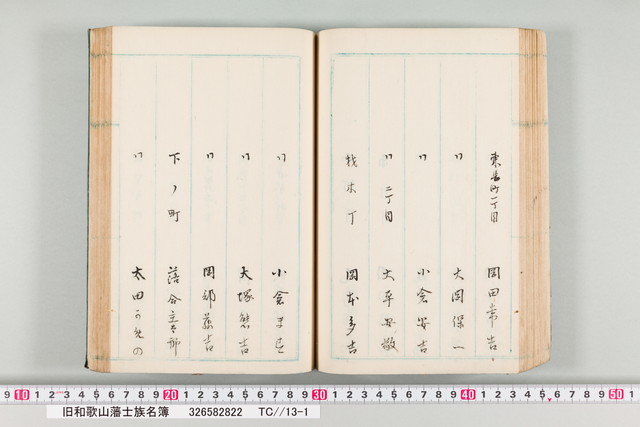 東長町一丁目 岡田常吉
〃 大岡保一
〃 小倉安吉
〃 二丁目 大平安敬
牧木丁 岡本多吉
〃 小倉ます
〃 大塚熊吉
〃 岡部藤吉
下ノ町 落合主郎
太田
10 1 2 3 4 5 6 7 8 9 20 1 2 3 4 5 6 7 8 9 30 1 2 3 4 5 6 7 8 9 40 1 2 3 4 5 6 7 8 9 50
旧和歌山藩士族名簿 326582822 TC//13-1